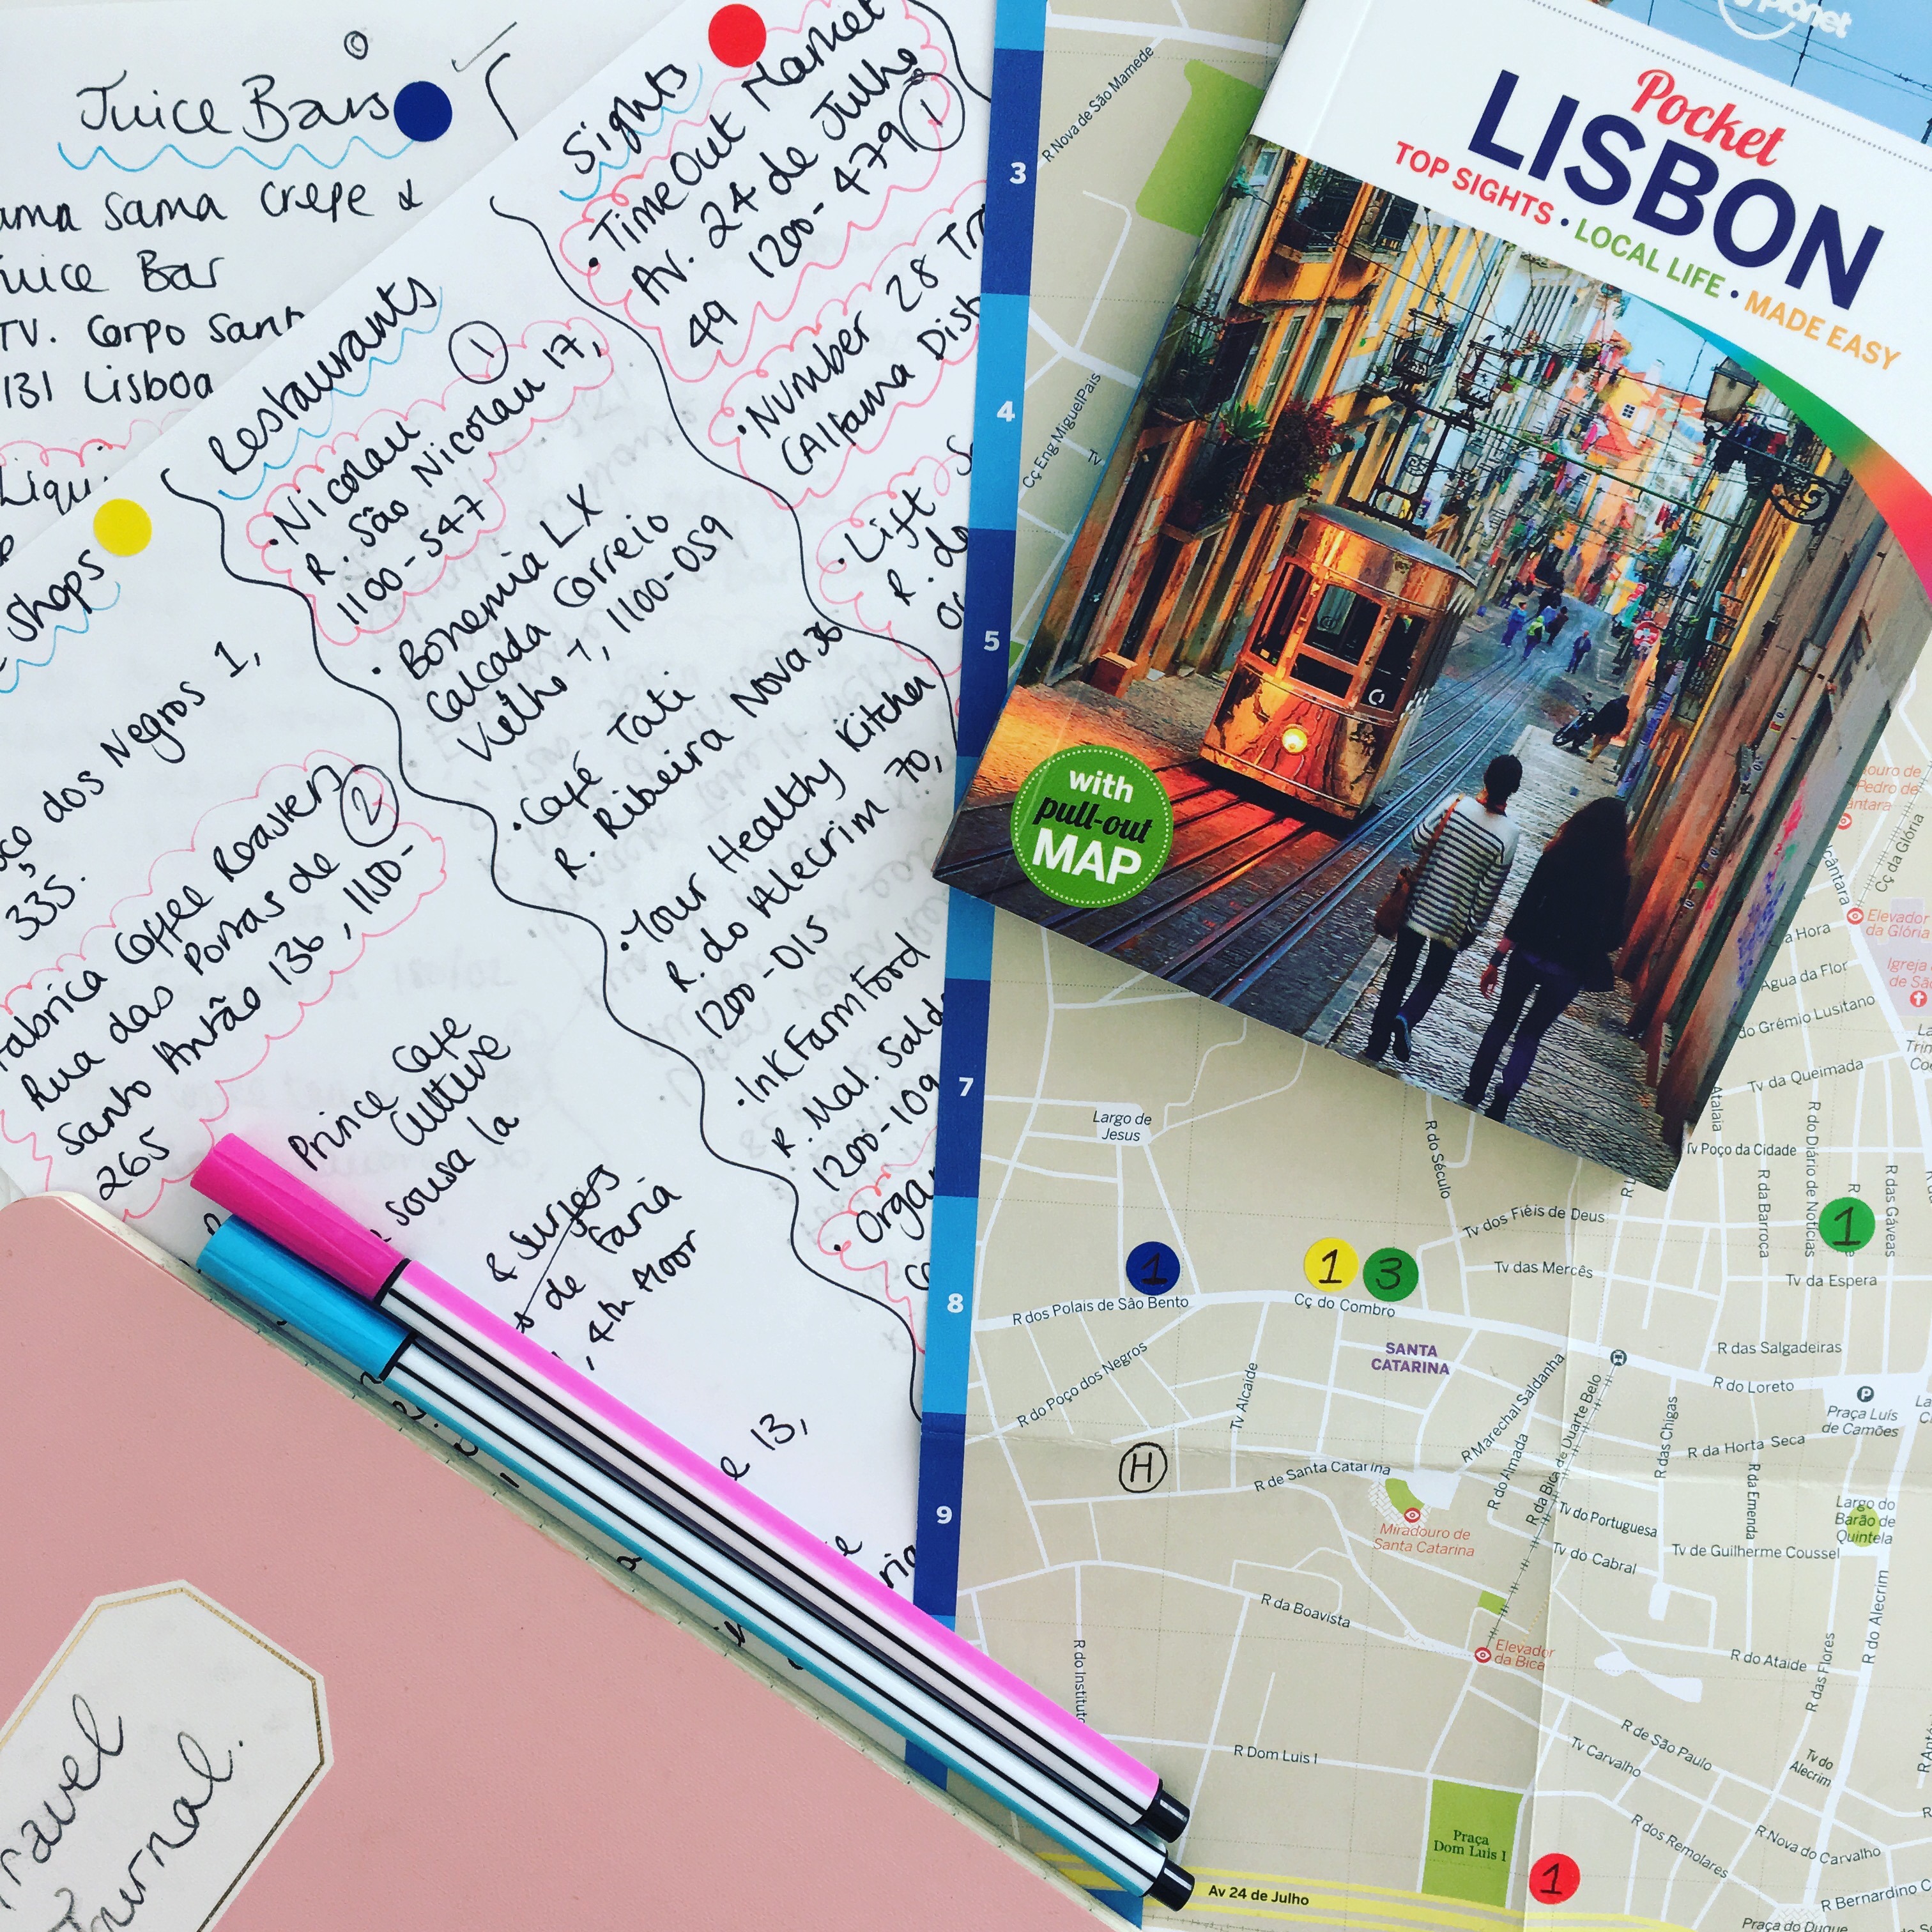 Juice Bars
Sama Crepe &
Bar
TV. Corpo
131 Lisboa
Shops
dos Negros 1,
335.
Fabrica Coffee Roasters
2
Rua das Portas de
Santo Antão 136, 1150-
265
Prince Cafe
Culture
sousa la
& Surfers
de Faria
, 4th Floor
13,
Restaurants
1
• Nicolau
R. São Nicolau 17,
1100-547
• Bohemia LX
Calcada Correio
Velho 7, 1100-059
• Café Tati
R. Ribeira Nova 36
• Your Healthy Kitchen
R. do Alecrim 70,
1200-015
• Ink Farm Food
R. Mal. Sald
1200-109
Sights
• TimeOut Market
Av. 24 de Julho
49 1200-479
1
• Number 28
(Alfama
• Lift
R. do
Travel
Journal.
planet
Pocket
LISBON
TOP SIGHTS • LOCAL LIFE • MADE EASY
with
pull-out
MAP
3
4
5
7
8
9
R Nova de São Mamede
Cç Eng MiguelPais
Tv
Cç da Glória
Elevador
da Glória
Igreja
Hora
Água da Flor
do Grémio Lusitano
Tv da Queimada
Atalaia
Tv Poço da Cidade
R da Barroca
R do Diário de Notícias
R das Gáveas
Largo de
Jesus
R do Século
Tv dos Fiéis de Deus
Tv das Mercês
Tv da Espera
1
1
3
1
R dos Polais de São Bento
Cç do Combro
SANTA
CATARINA
R das Salgadeiras
R do Loreto
P
Praça Luís
de Camões
R do Poço dos Negros
Tv Alcaide
R Marechal Saldanha
R da Bica de Duarte Belo
R das Chigas
R da Horta Seca
H
R de Santa Catarina
R do Almada
R da Emenda
Miradouro de
Santa Catarina
Tv do Portuguesa
Largo do
Barão de
Quintela
Tv do Cabral
Tv de Guilherme Coussel
R da Boavista
Elevador
da Bica
R do Ataide
R das Flores
R do Alecrim
R do Instituto
R Dom Luis I
R de São Paulo
Tv Carvalho
Tv do
Alecrim
Praça
Dom Luis I
R dos Remolares
R Nova do Carvalho
1
Av 24 de Julho
R Bernardino
Praça do Duque